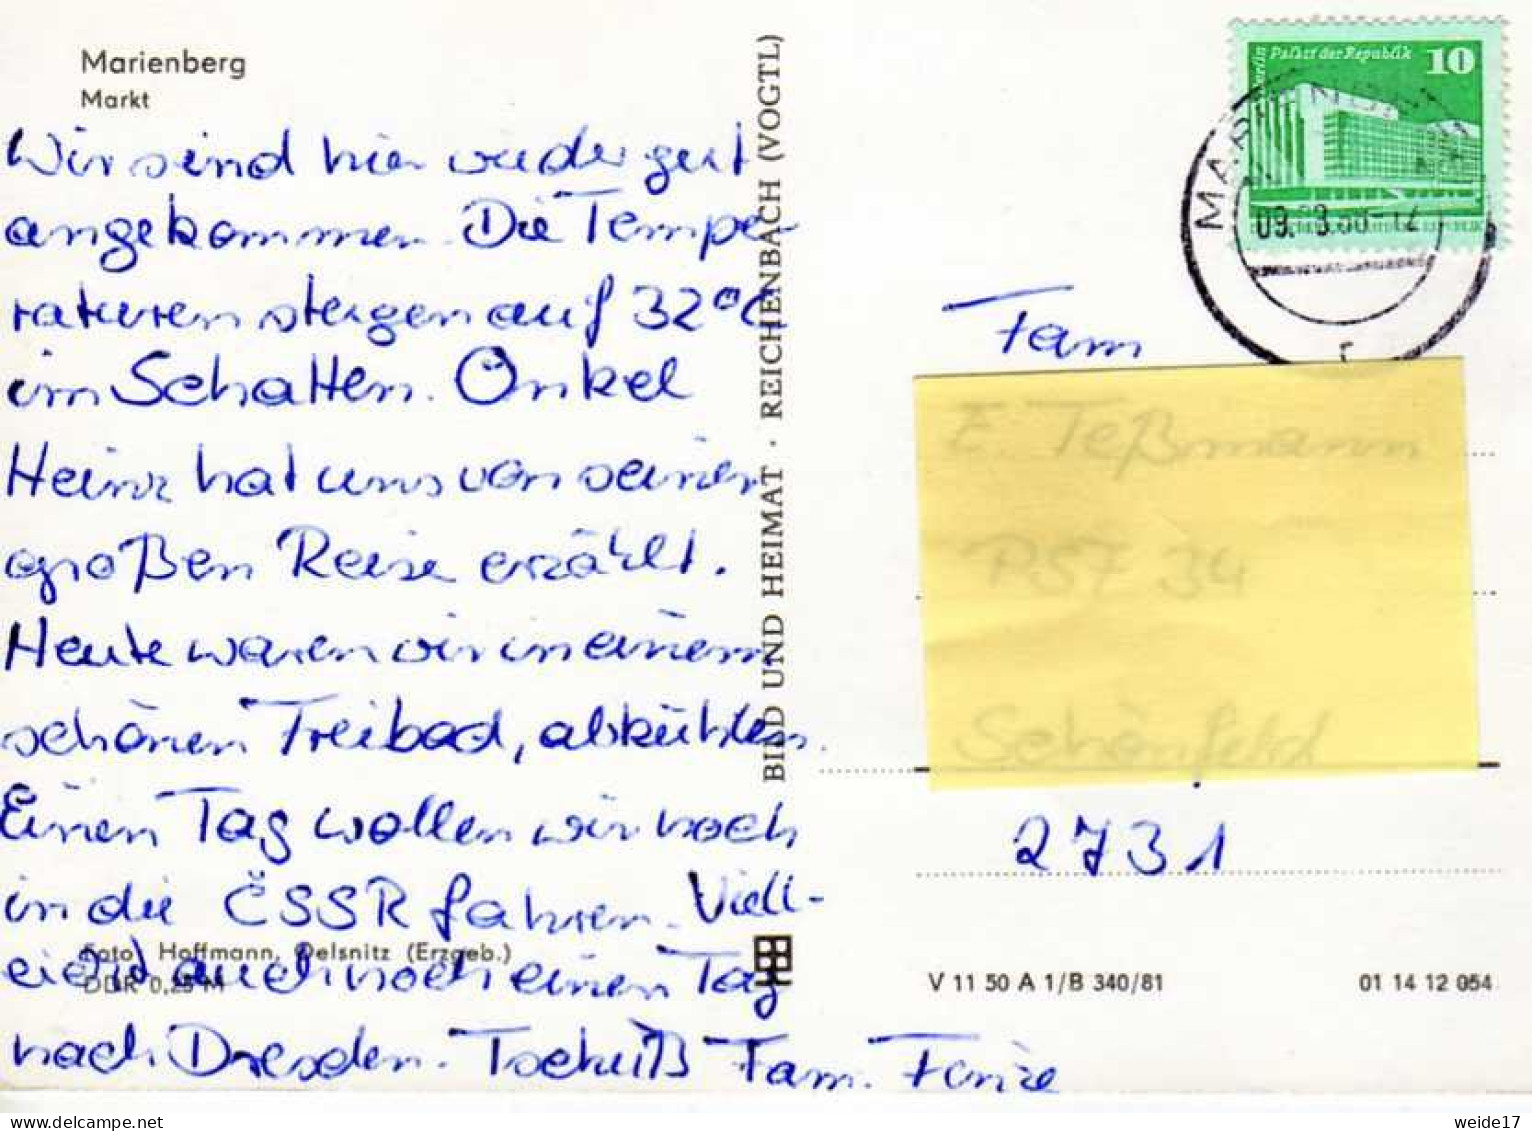 Marienberg
Markt
Wir sind hier wieder gut
angekommen. Die Tempe-
raturen steigen auf 32°C
im Schatten. Onkel
Heinz hat uns von seiner
großen Reise erzählt.
Heute waren wir in einem
schönen Freibad, abkühlen.
Einen Tag wollen wir noch
in die ČSSR fahren. Viell-
eicht auch noch einen Tag
nach Dresden. Tschüß Fam.
Foto Hoffmann, Oelsnitz (Erzgeb.)
DDR 0,25 M
BILD UND HEIMAT · REICHENBACH (VOGTL)
Berlin Palast der Republik 10
Fam
E. Teßmann
PSF 34
Schönfeld
2731
V 11 50 A 1/B 340/81
01 14 12 054
weide17